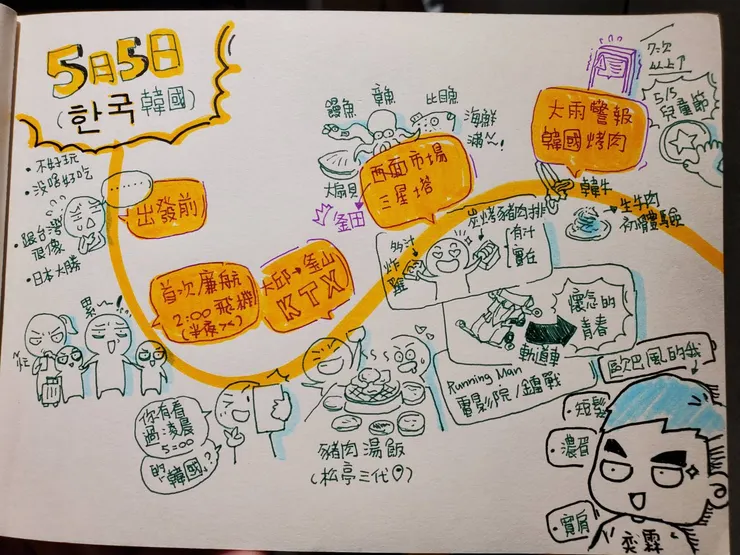 5月5日
(한국 韓國)
• 不好玩
• 沒啥好吃
• 跟台灣
很像
• 日本大勝
......
出發前
首次廉航
2:00 飛機
(半夜
大邱→釜山
KTX
累~!
你有看
過凌晨
5:00
的韓國?
豬肉湯飯
(松亭三代♡)
章魚
比目魚
海鮮
滿~!
大扇貝
西面市場
三星塔
釜田
多汁
炸雞
炭烤豬肉排
有汁
實在
懷念的
青春
軌道車
Running Man
電影院/鐘戰
7:00
以上↑
大雨警報
韓國烤肉
5/5
兒童節
韓牛
生牛肉
初體驗
歐巴風的我
短髮
濃眉
寬肩
奕霖